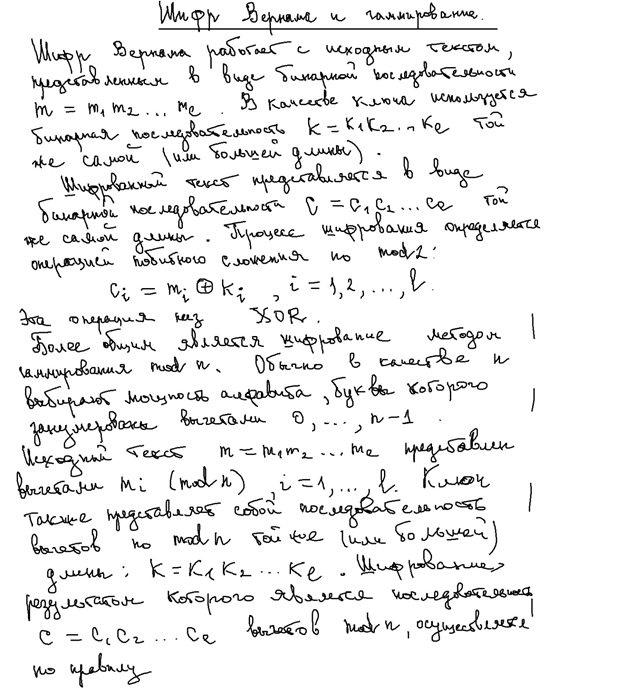 Шифр Вернама и гаммирование.
Шифр Вернама работает с исходным текстом,
представленным в виде бинарной последовательности
m = m₁ m₂ ... mₑ . В качестве ключа используется
бинарная последовательность k = k₁k₂ ... kₑ той
же самой (или большей длины).
Шифрованный текст представляется в виде
бинарной последовательности c = c₁c₂ ... cₑ той
же самой длины. Процесс шифрования определяется
операцией побитного сложения по mod 2:
cᵢ = mᵢ ⊕ kᵢ , i = 1,2, ..., l.
Эта операция наз XOR.
Более общим является шифрование методом
гаммирования mod n. Обычно в качестве n
выбирают мощность алфавита, буквы которого
занумерованы вычетами 0, ..., n-1 .
Исходный текст m = m₁m₂ ... mₑ представлен
вычетами mᵢ (mod n) , i = 1, ..., l. Ключ
также представляет собой последовательность
вычетов по mod n той же (или большей)
длины: k = k₁ k₂ ... kₑ . Шифрование,
результатом которого является последовательность
c = c₁ c₂ ... cₑ вычетов mod n, осуществляется
по правилу